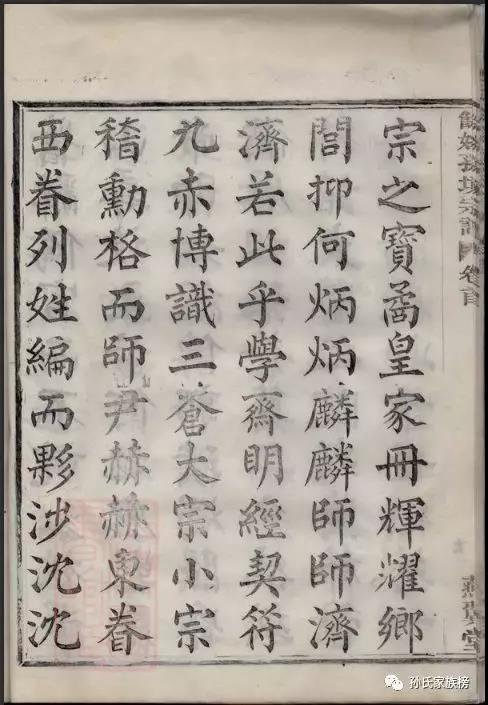 餘姚孫境宗譜 卷首
燕翼堂
宗之寶矞皇家冊輝耀鄉
閭抑何炳炳麟麟師師濟
濟若此乎學齋明經契符
九赤博識三蒼大宗小宗
稽勳格而師尹赫赫東眷
西眷列姓編而夥涉沈沈
孙氏家族榜